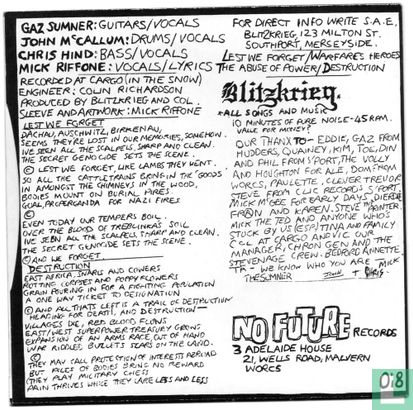 GAZ SUMNER: GUITARS/VOCALS
JOHN McCALLUM: DRUMS/VOCALS
CHRIS HIND: BASS/VOCALS
MICK RIFFONE: VOCALS/LYRICS
RECORDED AT CARGO (IN THE SNOW)
ENGINEER: COLIN RICHARDSON
PRODUCED BY BLITZKRIEG AND COL.
SLEEVE AND ARTWORK: MICK RIFFONE
LEST WE FORGET
DACHAU, AUSCHWITZ, BIRKENAU,
SEEMS THEY'RE LOST IN OUR MEMORIES, SOMEHOW.
I'VE SEEN ALL THE SCALPELS, SHARP AND CLEAN.
THE SECRET GENOCIDE SETS THE SCENE.
© LEST WE FORGET, LIKE LAMBS THEY WENT.
SO ALL THE CATTLETRAINS BRING IN THE 'GOODS'
IN AMONGST THE CHIMNEYS IN THE WOOD,
BODIES MOUNT ON BURNING PYRES
GOAL, PROPAGANDA FOR NAZI FIRES
©
EVEN TODAY OUR TEMPERS BOIL.
OVER THE BLOOD OF TREBLINKA'S SOIL
I'VE SEEN ALL THE SCALPELS SHARP AND CLEAN.
THE SECRET GENOCIDE SETS THE SCENE.
© AND WE FORGET
DESTRUCTION
EAST AFRICA, SNARLS AND COWERS
ROTTING CORPSES AND POPPY FLOWERS
GRAIN POURING IN FOR A FIGHTING POPULATION
A ONE WAY TICKET TO DESIGNATION
© AND ALL THAT'S LEFT IS A TRAIL OF DESTRUCTION
HEADING FOR DEATH, AND DESTRUCTION
VILLAGES DIE, RED BLOOD FLOWS
EAST/WEST SUPERPOWER TREASURY GROWS
EXPANSION OF AN ARMS RACE, OUT OF HAND
WAR RIDDLED, BULLETS SCARS ON THE LAND.
©
THEY MAY CALL PROTECTION OF INTERESTS ABROAD
BUT PILES OF BODIES BRING NO REWARD
THEY PLAY MILITARY CHESS
PAIN THRIVES WHILE THEY CARE LESS AND LESS
FOR DIRECT INFO WRITE S.A.E.
BLITZKRIEG, 123 MILTON ST.
SOUTHPORT, MERSEYSIDE.
LEST WE FORGET/WARFARE'S HEROES
THE ABUSE OF POWER/DESTRUCTION
Blitzkrieg.
ALL SONGS AND MUSIC
10 MINUTES OF PURE NOISE-45RPM.
VALUE FOR MONEY?
OUR THANX TO- EDDIE, GAZ FROM
HUDDERS, QUANEY, KIM, TOE, DIN
AND PHIL FROM S'PORT, THE VOLLY
AND HOUGHTON FOR ALE, DOM FROM
WORCS, PAULETTE, CLEVER TREVOR
STEVE FROM CLIC RECORDS S'PORT,
MICK M'GEE FOR EARLY DAYS, DIERDRE
FRAN AND KAREN, STEVE
MICK THE TED AND ANYONE WHO'S
STUCK BY US (ESP) TINA AND FAMILY
COL AT CARGO AND VIC OUR
MANAGER, CHRON GEN AND THE
STEVENAGE CREW. BEDFORD ANNETTE
TA - WE KNOW WHO YOU ARE MICK
THESUMNER JOHN + CHRIS
NO FUTURE RECORDS
3 ADELAIDE HOUSE
21, WELLS ROAD, MALVERN
WORCS
Oi8